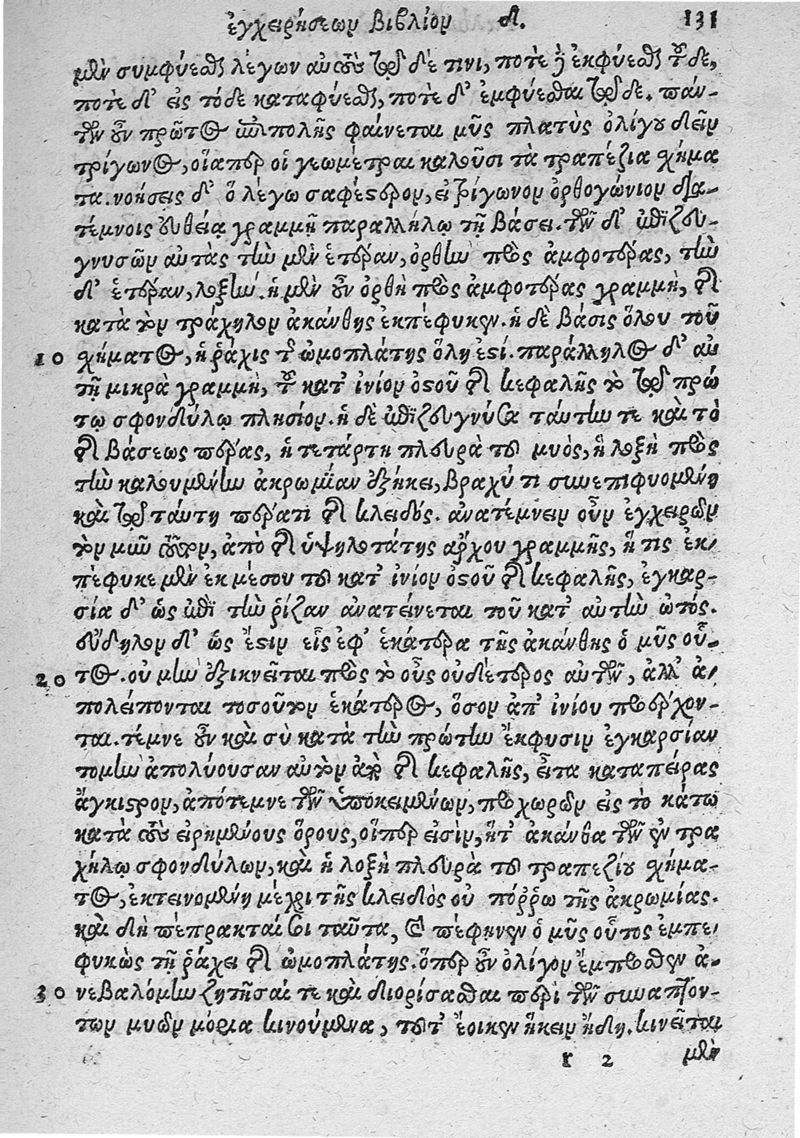 ἐγχειρήσεων βιβλίον δ. 131
μὲν συμφύεσθαι λέγων αὐτοὺς τῷδέ τινι, ποτὲ δ' ἐκφύεσθαι τοῦδε,
ποτὲ δ' εἰς τόδε καταφύεσθαι, ποτὲ δ' ἐμφύεσθαι τῷδε. πάν-
των οὖν πρῶτος ἐπιπολῆς φαίνεται μῦς πλατὺς ὀλίγου δεῖν
τρίγωνος, οἵαπερ οἱ γεωμέτραι καλοῦσι τὰ τραπέζια χήμα
τα. νοήσεις δ' ὃ λέγω σαφέστερον, εἰ τρίγωνον ὀρθογώνιον δια-
τέμνοις εὐθείᾳ γραμμῇ παραλλήλῳ τῇ βάσει. τῶν δ' ἐπιζευ-
γνυσῶν αὐτὰς τὴν μὲν ἑτέραν, ὀρθὴν πρὸς ἀμφοτέρας, τὴν
δ' ἑτέραν, λοξήν. ἡ μὲν οὖν ὀρθὴ πρὸς ἀμφοτέρας γραμμὴ, τῆς
κατὰ τὸν τράχηλον ἀκάνθης ἐκπέφυκεν. ἡ δὲ βάσις ὅλου τοῦ
10 χήματος, ἡ ῥάχις τῆς ὠμοπλάτης ὅλη ἐστί. παράλληλος δ' αὐ
τῇ μικρὰ γραμμὴ, τοῦ κατ' ἰνίον ὀστοῦ τῆς κεφαλῆς τὸ τῷ πρώ
τῳ σφονδύλῳ πλησίον. ἡ δὲ ἐπιζευγνύσα ταύτην τε καὶ τὸ
τῆς βάσεως πέρας, ἡ τετάρτη πλευρὰ τοῦ μυὸς, ἡ λοξὴ πρὸς
τὴν καλουμένην ἀκρωμίαν ἐξήκει, βραχύ τι συνεπιφυομένη
καὶ τῷ ταύτῃ πέρατι τῆς κλειδός. ἀνατέμνειν οὖν ἐγχειρῶν
τὸν μῦν τοῦτον, ἀπὸ τῆς ὑψηλοτάτης ἄρχου γραμμῆς, ἥ τις ἐκ-
πέφυκε μὲν ἐκ μέσου τοῦ κατ' ἰνίον ὀστοῦ τῆς κεφαλῆς, ἐγκαρ-
σία δ' ὡς ἐπὶ τὴν ῥίζαν ἀνατείνεται τοῦ κατ' αὐτὴν ὠτός.
εὔδηλον δ' ὡς ἔστιν εἷς ἐφ' ἑκάτερα τῆς ἀκάνθης ὁ μῦς οὗ-
20 τος. οὐ μὴν ἐξικνεῖται πρὸς τὸ οὖς οὐδέτερος αὐτῶν, ἀλλ' ἀ-
πολείπονται τοσοῦτον ἑκάτερος, ὅσον ἀπ' ἰνίου προέρχον-
ται. τέμνε οὖν καὶ σὺ κατὰ τὴν πρώτην ἔκφυσιν ἐγκαρσίαν
τομὴν ἀπολύουσαν αὐτὸν ἀπὸ τῆς κεφαλῆς, εἶτα καταπείρας
ἄγκιστρον, ἀπότεμνε τῶν ὑποκειμένων, προχωρῶν εἰς τὸ κάτω
κατὰ τοὺς εἰρημένους ὅρους, οἵπερ εἰσὶν, ἥτ' ἄκανθα τῶν ἐν τρα
χήλῳ σφονδύλων, καὶ ἡ λοξὴ πλευρὰ τοῦ τραπεζίου χήμα-
τος, ἐκτεινομένη μέχρι τῆς κλειδὸς οὐ πόῤῥω τῆς ἀκρωμίας.
καὶ δὴ πέπρακταί σοι ταῦτα, καὶ πέφηνεν ὁ μῦς οὗτος ἐμπε-
φυκὼς τῇ ῥάχει τῆς ὠμοπλάτης. ὅπερ οὖν ὀλίγον ἔμπροσθεν ἀ-
30 νεβαλόμην ζητῆσαί τε καὶ διορίσασθαι περὶ τῶν συναπτόν-
των μυῶν μόρια κινούμενα, τοῦτ' ἔοικεν ἥκειν ἤδη. κινεῖται
r 2 μὲν